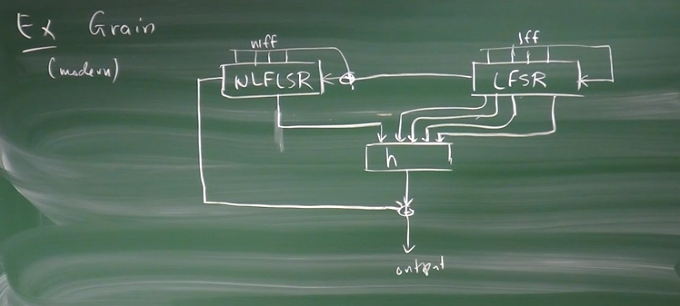 Ex Grain
(modern)
nlff
lff
NLFLSR
LFSR
h
output